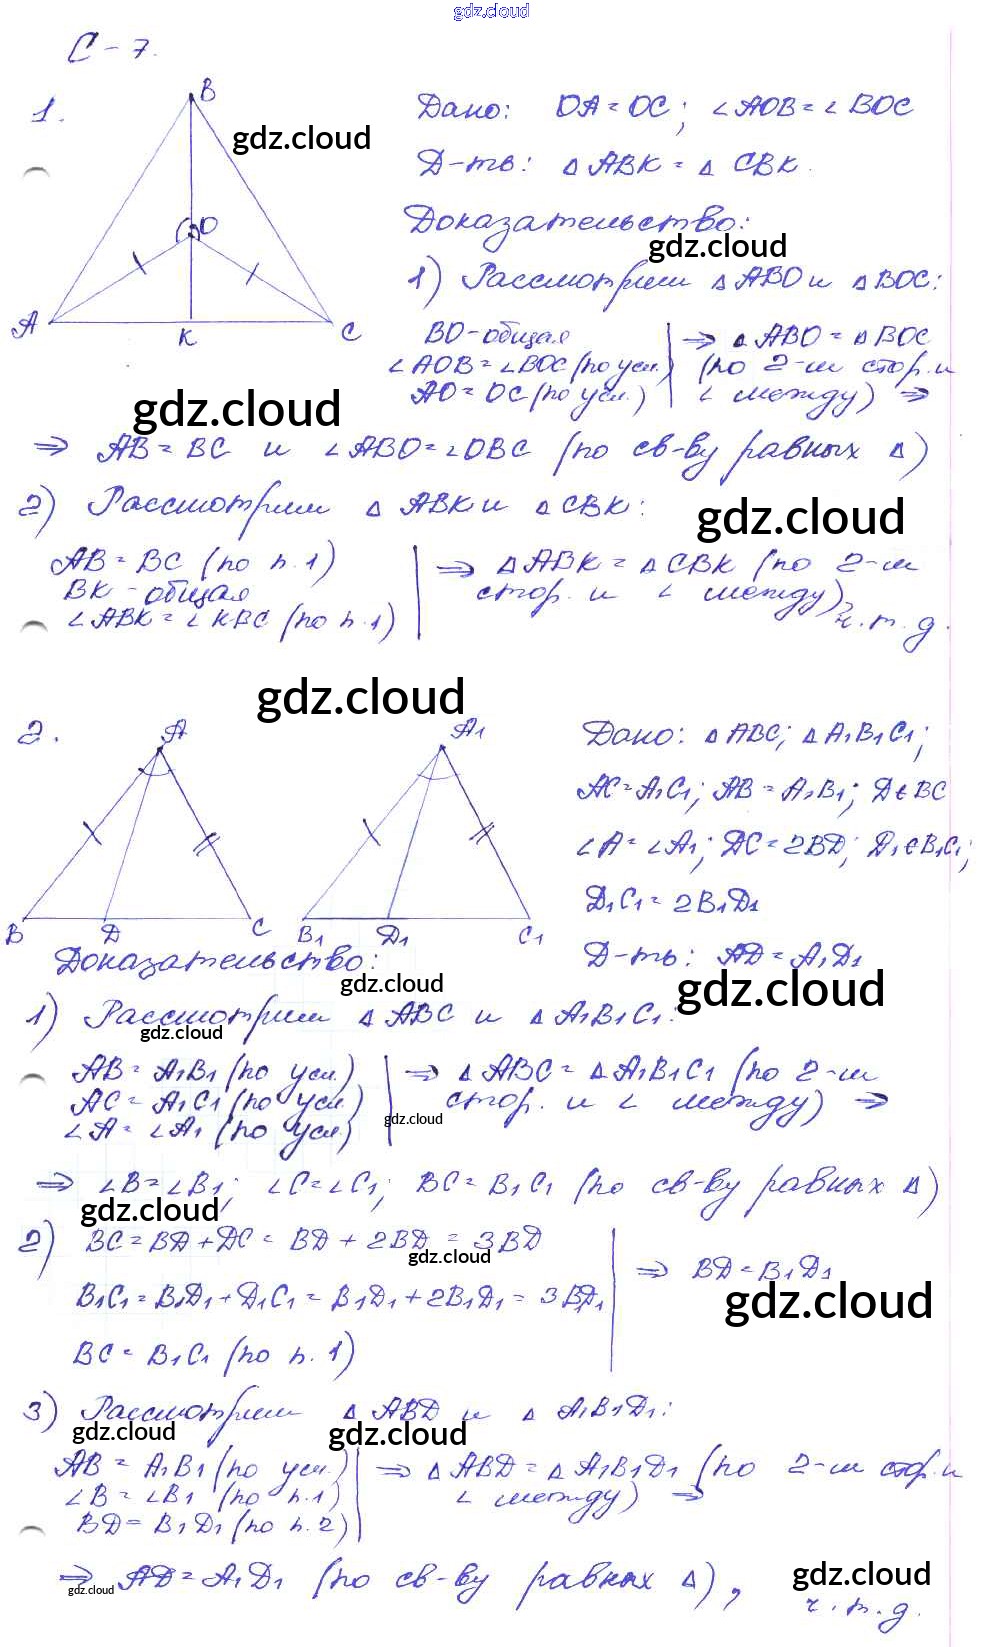 gdz.cloud
С-7.
1.
B
O
A
K
C
gdz.cloud
Дано: OA=OC; ∠AOB=∠BOC
Д-ть: △ABK=△CBK.
Доказательство:
gdz.cloud
1) Рассмотрим △ABO и △BOC:
BO-общая
∠AOB=∠BOC (по усл.)
AO=OC (по усл.)
⇒ △ABO=△BOC
(по 2-м стор. и
∠ между) ⇒
gdz.cloud
⇒ AB=BC и ∠ABO=∠OBC (по св-ву равных △)
2) Рассмотрим △ABK и △CBK:
gdz.cloud
AB=BC (по п.1)
BK-общая
∠ABK=∠KBC (по п.1)
⇒ △ABK=△CBK (по 2-м
стор. и ∠ между),
ч.т.д.
gdz.cloud
2.
A
B
D
C
A1
B1
D1
C1
Дано: △ABC; △A1B1C1;
AC=A1C1; AB=A1B1; D∈BC
∠A=∠A1; DC=2BD; D1∈B1C1;
D1C1=2B1D1
Д-ть: AD=A1D1
gdz.cloud
Доказательство:
gdz.cloud
1) Рассмотрим △ABC и △A1B1C1:
gdz.cloud
AB=A1B1 (по усл.)
AC=A1C1 (по усл.)
∠A=∠A1 (по усл)
⇒ △ABC=△A1B1C1 (по 2-м
стор. и ∠ между) ⇒
gdz.cloud
⇒ ∠B=∠B1; ∠C=∠C1; BC=B1C1 (по св-ву равных △)
gdz.cloud
2) BC=BD+DC=BD+2BD=3BD
gdz.cloud
B1C1=B1D1+D1C1=B1D1+2B1D1=3B1D1
BC=B1C1 (по п.1)
⇒ BD=B1D1
gdz.cloud
3) Рассмотрим △ABD и △A1B1D1:
gdz.cloud
gdz.cloud
AB=A1B1 (по усл.)
∠B=∠B1 (по п.1)
BD=B1D1 (по п.2)
⇒ △ABD=△A1B1D1 (по 2-м стор. и
∠ между) ⇒
⇒ AD=A1D1 (по св-ву равных △),
gdz.cloud
gdz.cloud
ч.т.д.